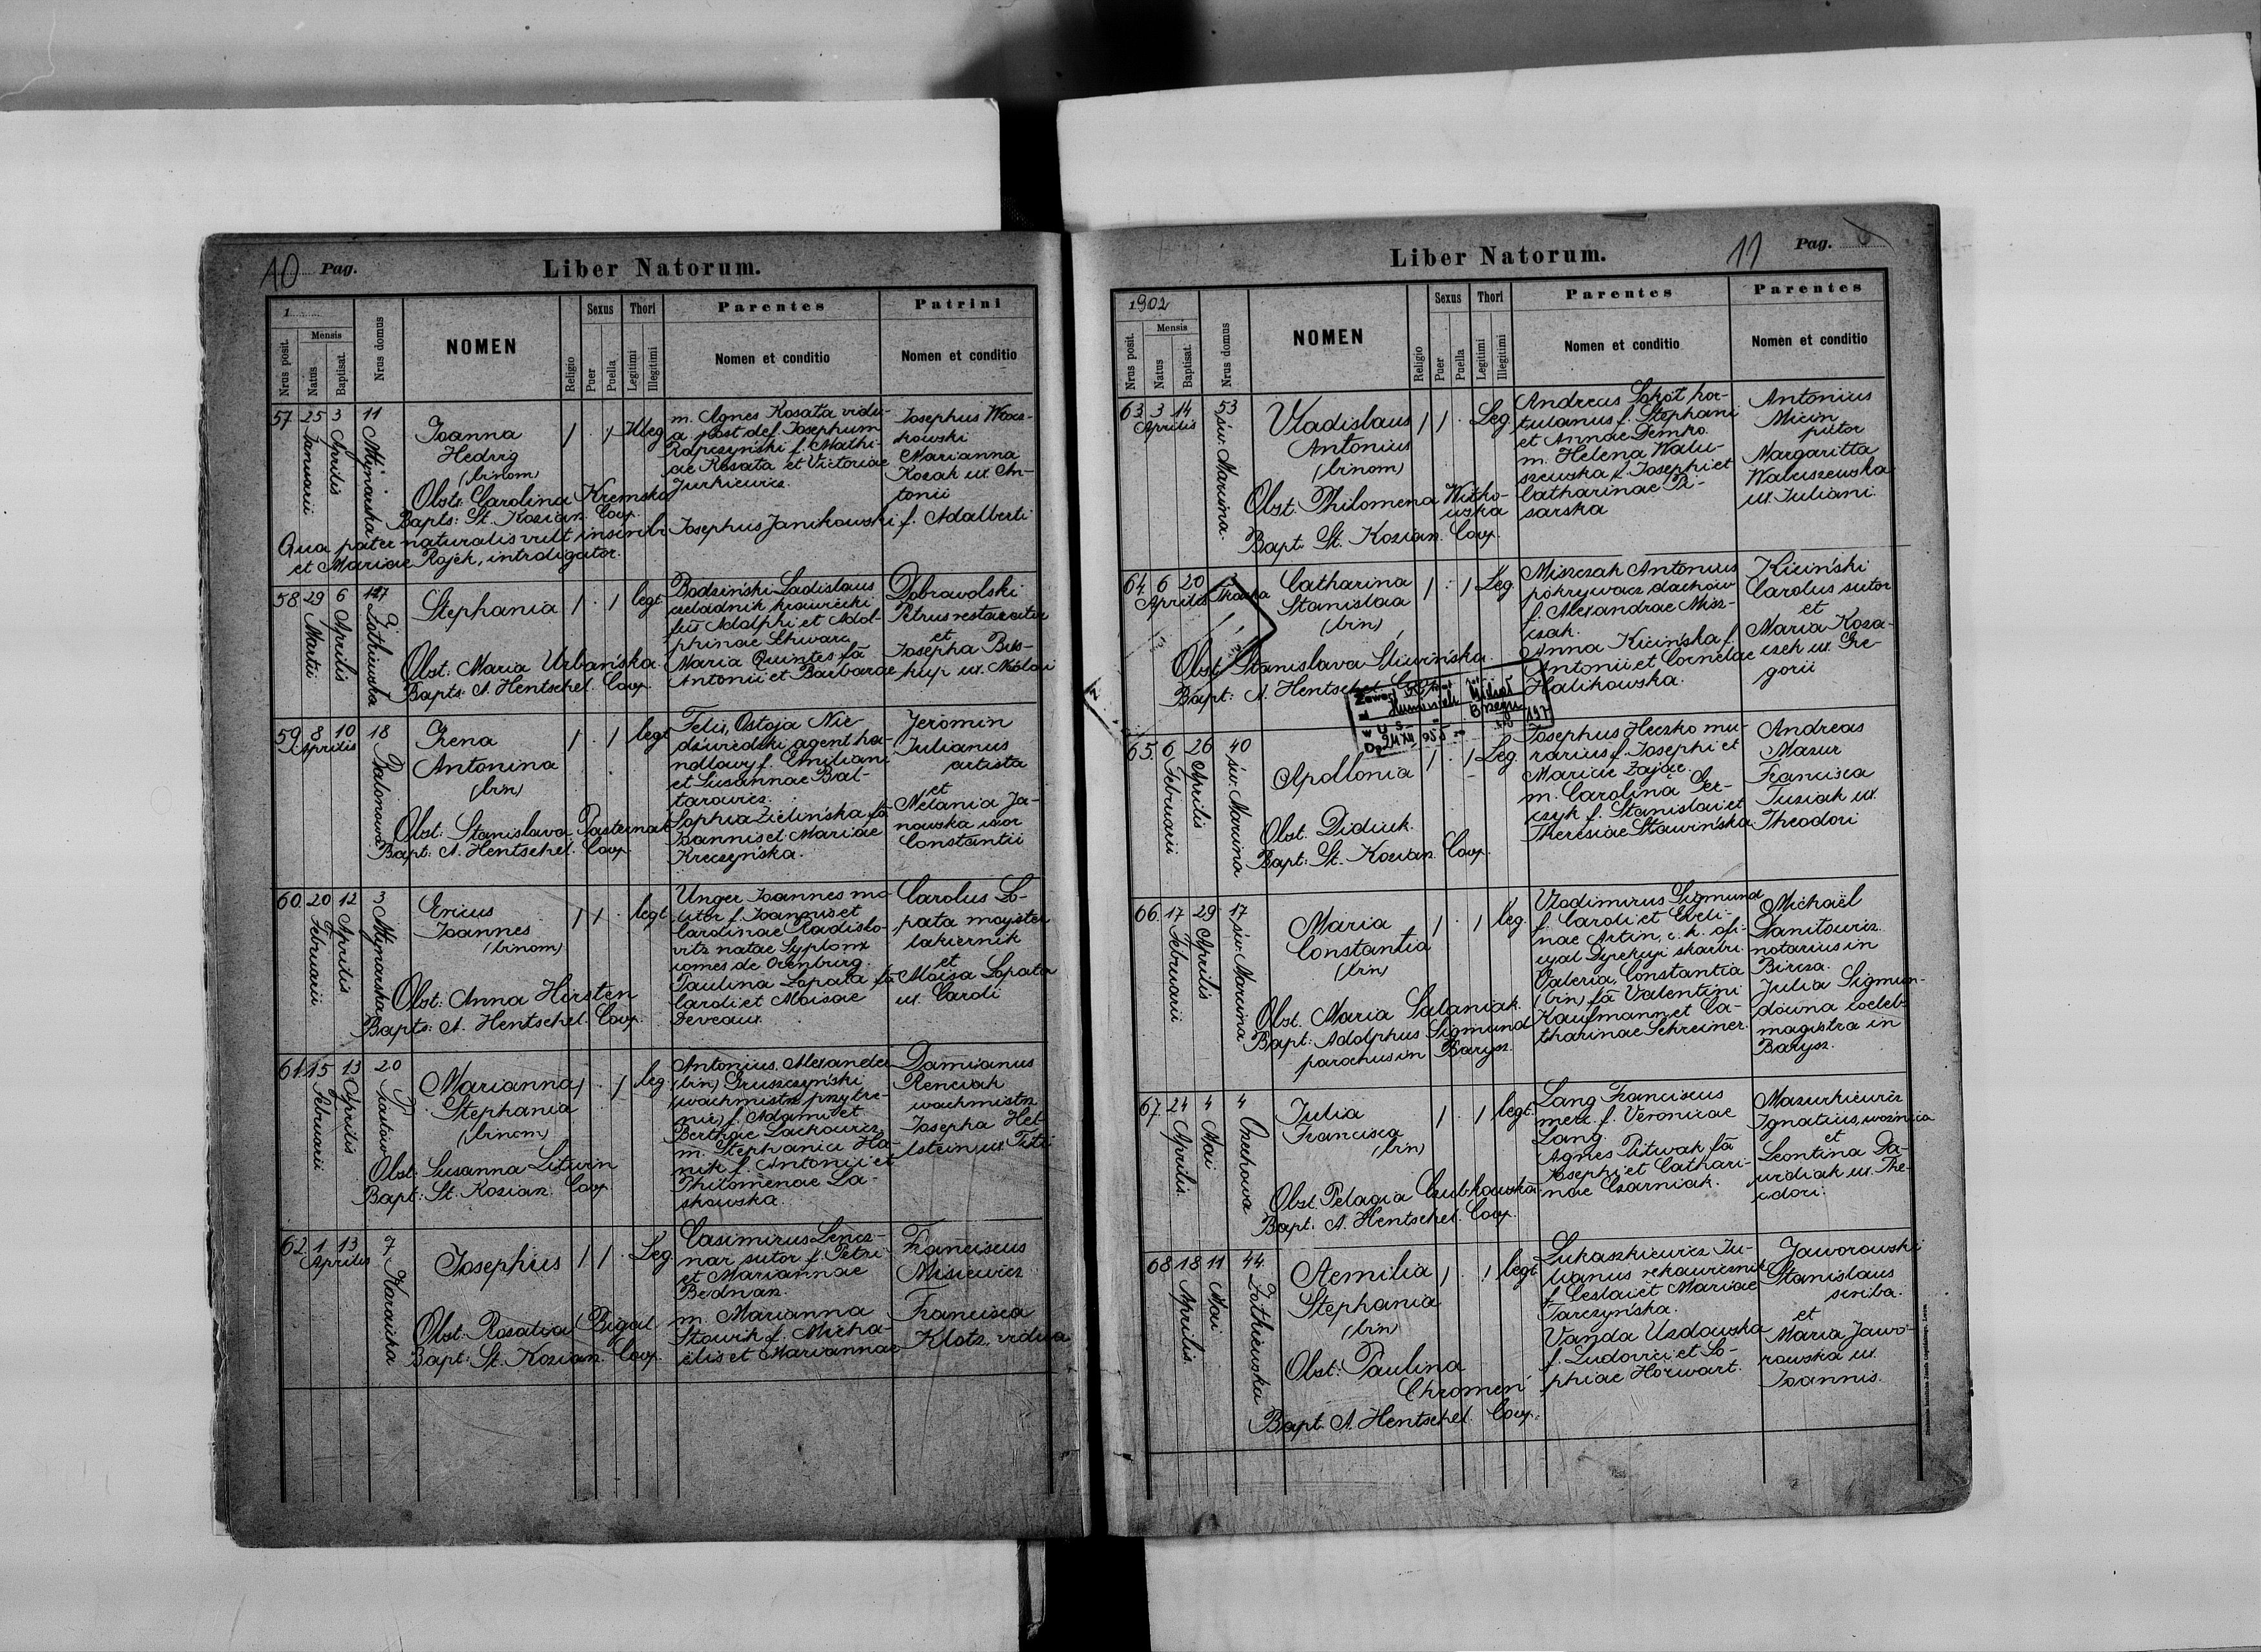 10 Pag.
Liber Natorum.
1
Nrus posit.
Mensis
Natus
Baptisat.
Nrus domus
NOMEN
Religio
Sexus
Puer
Puella
Thori
Legitimi
Illegitimi
Parentes
Nomen et conditio
Patrini
Nomen et conditio
57. 25 Januarii 3 Aprilis 11 Młynarska
Joanna
Hedvig
(binom)
1 . 1 Illeg
Obst. Carolina Kremska
Bapts: St. Kozian. Coop.
m. Agnes Kosata vidu-
a post def. Josephum
Rapczyński f. Mathi-
ae Kosata et Victoriae
Jurkiewicz.
Josephus Wosz-
kowski
Marianna
Kozak ux. An-
tonii
Qua pater naturalis vult inscribi Josephus Janikowski f. Adalberti
et Mariae Rojek, introligator.
58. 29 Martii 6 Aprilis 127 Żółkiewska
Stephania
1 . 1 legt
Obst. Maria Urbańska.
Bapts: A. Hentschel. Coop.
Bodziński Ladislaus
czeladnik krawiecki
fus Adolphi et Adol-
phinae Schwarz
Maria Quintes fa
Antonii et Barbarae
Dobrowolski
Petrus restaurator
et
Josepha Bis-
kup ux. Nicolai
59. 8 10 Aprilis 18 Balonowa
Irena
Antonina
(bin)
1 . 1 legt
Obst: Stanislava Pasternak
Bapt: A. Hentschel. Coop.
Felix, Ostoja Nie
dźwiedzki agent ha-
ndlowy f. Emiliani
et Susannae Bal-
tarowicz.
Sophia Zielińska fa
Joannis et Mariae
Kreczyńska.
Jeromin
Julianus
artista
et
Melania Ja-
nowska uxor
Constantii
60. 20 Februarii 12 Aprilis 3 Młynarska
Ericus
Joannes
(binom)
1 1 . legt
Obst: Anna Hirsten
Bapts: A. Hentschel. Coop.
Unger Joannes mo-
litor f. Joannis et
Carolinae Radislo-
vits natae
comes de Orenburg.
Paulina Łopata fa
Caroli et Aloisae
Deveaux.
Carolus Ło-
pata majster
lakiernik
et
Aloisa Łopata
ux. Caroli
61. 15 Februarii 13 Aprilis 20
Marianna
Stephania
(binom)
1 . 1 leg
Obst: Susanna Litwin
Bapt: St. Kozian. Coop.
Antonius, Alexander
(bin) Gruszczyński
wachmistrz przy tre-
nie f. Adami et
Berthae Lachowicz
m. Stephania Ha-
nik f. Antonii et
Philomenae La-
skowska.
Damianus
Renciak
wachmistrz
Josepha Hel-
lstein ux. Titi
62. 1 13 Aprilis 7 Karaicka
Josephus
1 1 . Leg
Obst: Rosalia Bigal
Bapt: St. Kozian. Coop.
Casimirus Lencz-
nar sutor f. Petri
et Mariannae
Bednarz.
m. Marianna
Stawik f. Micha-
ëlis et Mariannae
Franciscus
Misiewicz
Francisca
Klotz, vidua
Liber Natorum.
11 Pag.
1902
Nrus posit.
Mensis
Natus
Baptisat.
Nrus domus
NOMEN
Religio
Sexus
Puer
Puella
Thori
Legitimi
Illegitimi
Parentes
Nomen et conditio
Parentes
Nomen et conditio
63. 3 14 Aprilis 53 św. Marcina.
Vladislaus
Antonius
(binom)
1 1 . Leg
Obst. Philomena Witko-
wska
Bapt: St. Kozian. Coop.
Andreas Sokół hor-
tulanus f. Stephani
et Annae Demko.
m. Helena Walu-
szewska f. Josephi et
Catharinae Pi-
sarska
Antonius
Micin
pictor
Margaritta
Waluszewska
ux. Juliani.
64. 6 20 Aprilis
Catharina
Stanislaa
(bin)
1 . 1 Leg.
Obst. Stanislava Śliwińska.
Bapt: A. Hentschel Coop.
Miszczak Antonius
pokrywacz dachów
f. Alexandrae Misz-
czak.
Anna Kicińska f.
Antonii et Corneliae
Halikowska.
Kiciński
Carolus sutor
et
Maria Koza-
czek ux. Gre-
gorii
65. 6 Februarii 26 Aprilis 40 św. Marcina
Apollonia
1 . 1 Leg.
Obst. Didiuk.
Bapt: St. Kozian. Coop.
Josephus Heczko mu-
rarius f. Josephi et
Mariae Zając.
m. Carolina Per-
czyk f. Stanislai et
Theresiae Stawińska.
Andreas
Mazur
Francisca
Tuziak ux.
Theodori
66. 17 Februarii 29 Aprilis 17 św. Marcina
Maria
Constantia
(bin)
1 . 1 leg.
Obst. Maria Salaniak.
Bapt: Adolphus Sigmund
parochus in Barysz.
Vlodimirus Sigmund
f. Caroli et Eveli-
nae Artin, c. k. ofi-
cyał Dyrekcyi skarbu.
Valeria, Constantia
(bin) fa Valentini
Kaufmann et Ca-
tharinae Schreiner.
Michaël
Daniłowicz
notarius in
Bircza.
Julia Sigmun-
dówna coeleb.
magistra in
Barysz.
67. 24 Aprilis 4 Mai 4 Orzechowa
Julia
Francisca
(bin)
1 . 1 legt.
Obst. Pelagia Czubkowska
Bapt. A. Hentschel. Coop.
Lang Franciscus
merc. f. Veronicae
Lang.
Agnes Pitwak fa
Josephi et Cathari-
nae Czarniak.
Mazurkiewicz
Ignatius, woźnica
et
Leontina Da-
widiak ux. The-
odori.
68 18 Aprilis 11 Mai 44. Żółkiewska
Aemilia
Stephania
(bin)
1 . 1 legt
Obst: Paulina
Chromen
Bapt. A. Hentschel. Coop.
Łukaszkiewicz Ju-
lianus rękawicznik
f. Ceslai et Mariae
Tarczyńska.
Vanda Uzdowska
f. Ludovici et So-
phiae Horwart.
Jaworowski
Stanislaus
scriba.
et
Maria Jawo-
rowska ux.
Joannis.